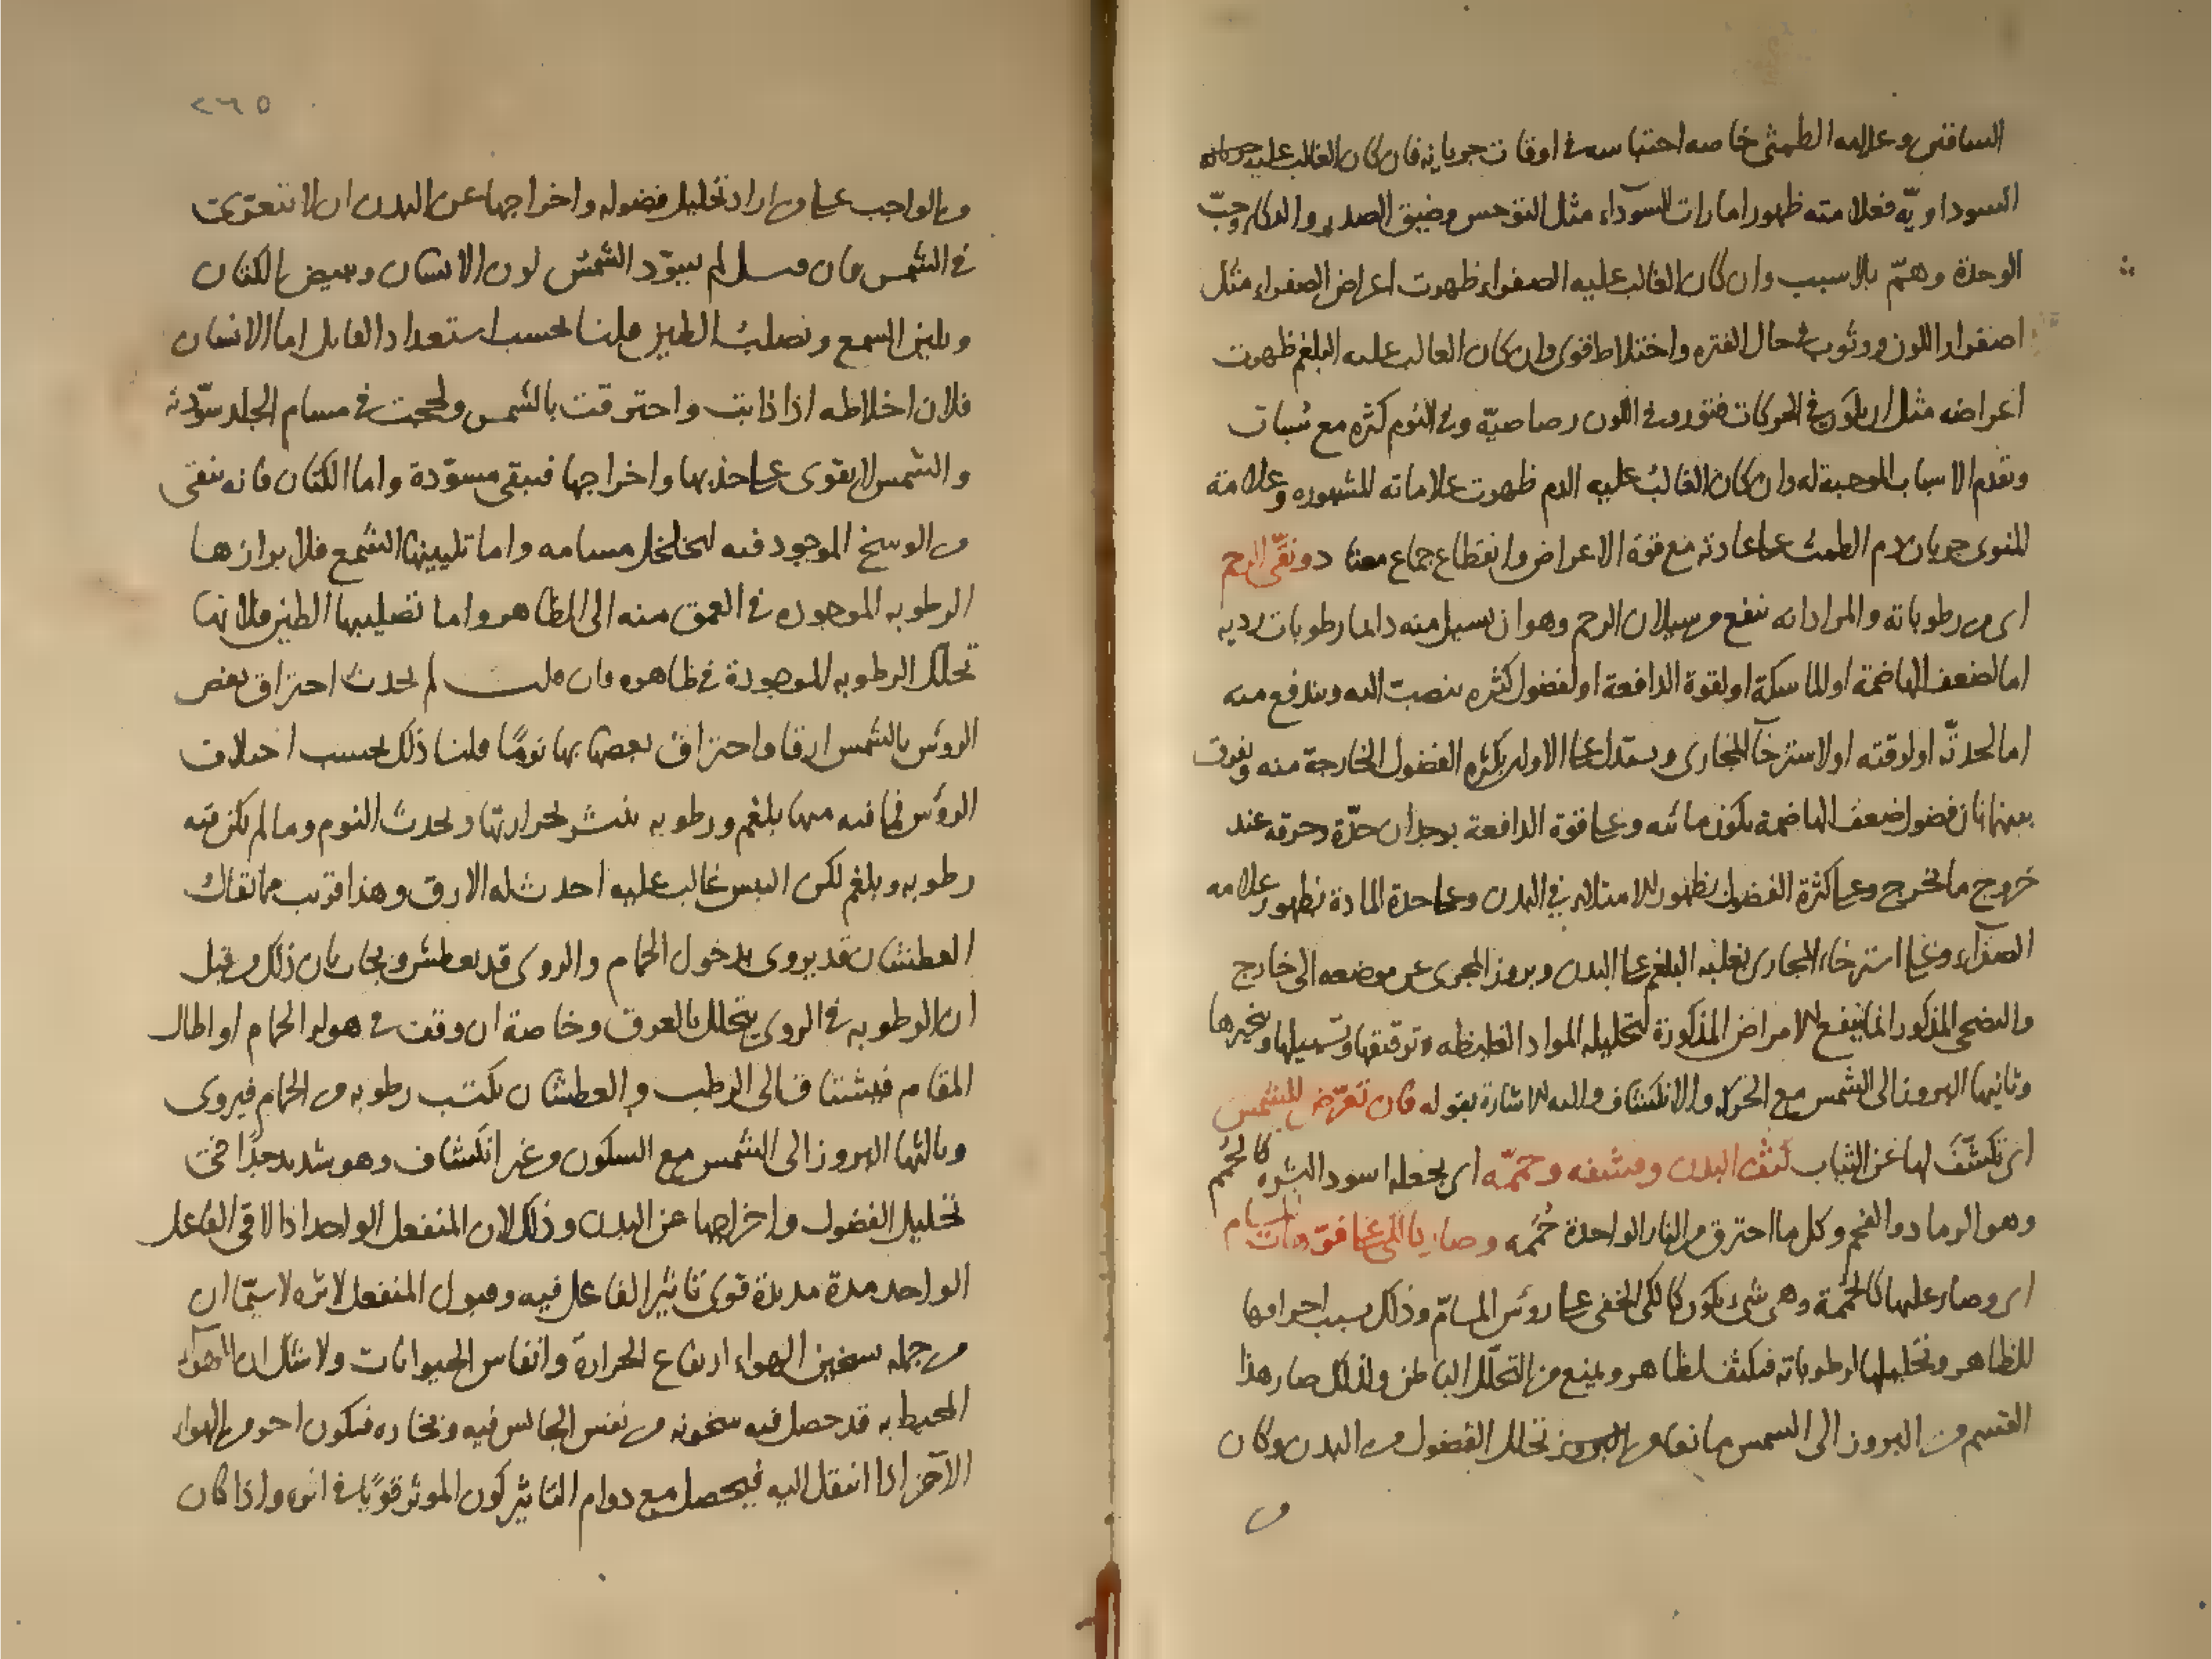 الساقين وعلامه الطمثى خاصه احتباسه فى اوقات جريانه فان كان الغالب عليه
السوداويّه فعلامته ظهور امارات السوداء مثل التوحس وضيق الصدر والبكا وحبّ
الوحدة وهمّ بلا سبب وان كان الغالب عليه الصفراء ظهرت اعراض الصفراء مثل
اصفرار اللون ووثوب فى حال الفتره واختلاط قوى وان كان الغالب عليه البلغم ظهرت
اعراضه مثل ان يكون فى الحركات فتور وفى اللون رصاصيّة وفى النوم كثره مع سُبات
وتقدم الاسباب الموجبة له وان كان الغالبُ عليه الدم ظهرت علاماته المشهوره وعلامة
المنوى جريان دم الطمث على عادته مع قوة الاعراض وانقطاع جماع معتاد ونقّى الرحم
اى من رطوباته والمراد انه ينفع من سيلان الرحم وهو ان يسيل منه دائما رطوبات رديه
اما لضعف الهاضمة او الماسكة او لقوة الدافعة او لفضول كثيره ينصبّ اليه ويندفع منه
اما لحدتّه او لرقته او لاسترخآ المجارى ويستدل على الاول بكثره الفضول الخارجة منه ويفرق
بينهما بان فضول ضعف الهاضمة يكون مائيه وعلى قوة الدافعة بوجدان حدّة وحرقه عند
خروج ما يخرج وعلى كثرة الفضول بظهور الامتلاء فى البدن وعلى حدة المادة بظهور علامه
الصفرآء وعلى استرخاء المجارى بغلبه البلغم على البدن وبروز المجرى عن موضعه الى خارج
والتضحى المذكور انما ينفع الامراض المذكورة لتحليله المواد الغليظه وترقيقها وتسييلها وتبخيرها
وثانيها البروز الى الشمس مع الحركه والانكشاف واليه الاشارة بقوله فان تعرّض للشمس
اى تكشّف لها عن الثياب كثف البدن وقشفه وحمّمه اى يجعله اسود البشره كالحُمَم
وهو الرماد والفحم وكل ما احترق من النار الواحدة حُمَمه وصار كالكى على فوّهات المسام
اى وصار عليها كالحُمَمة وهى شئ يكون كالكى الخفى على رؤس المسامّ وذلك بسبب احراقها
للظاهر وتحليلها لرطوباته فيكثف الظاهر ويمنع من التحلّل الباطن ولذلك صار هذا
القسم من البروز الى الشمس مانعا من تحلل الفضول من البدن وكان
٢٦٥
من الواجب على من اراد تحليل فضوله واخراجها عن البدن ان لا يتعرّى
فى الشمس فان قيل لم يسوّد الشمس لون الانسان ويبيض الكتان
ويلين الشمع ويصلبُ الطين قلنا بحسب استعداد القابل اما الانسان
فلان اخلاطه اذا ذابت واحترقت بالشمس ولحجت فى مسام الجلد سوّدته
والشمس لا يقوى على جذبها واخراجها فيبقى مسوّدة واما الكتان فانه ينقى
من الوسخ الموجود فيه لتخلخل مسامه واما تليينها الشمع فلابرازها
الرطوبه الموجوده فى العمق منه الى الظاهر واما تصليبها الطين فلانها
تحلل الرطوبه الموجودة فى ظاهره فان قلت لم يحدث احتراق بعض
الرؤس بالشمس ارقا واحتراق بعضها بها نومًا قلنا ذلك بحسب اختلاف
الرؤس فما فيه منها بلغم ورطوبه ينتشر لحرارتها ويحدث النوم وما لم يكن فيه
رطوبه وبلغم لكن اليبس غالب عليه احدث له الارق وهذا قريب مما تقال
العطشان قد يروى بدخول الحمام والروى قد يعطش ويجاب بان ذلك من قبل
ان الرطوبه فى الروى يتحلل بالعرق وخاصة ان وقف فى هواء الحمام او اطال
المقام فيشتاق الى الرطب والعطشان يكتسب رطوبه من الحمام فيروى
وثالثها البروز الى الشمس مع السكون وغير انكشاف وهو شديد جدًا فى
تحليل الفضول واخراجها عن البدن وذلك لان المنفعل الواحد اذا لاقى الفاعل
الواحد مدة مديدة قوى تاثير الفاعل فيه وقبول المنفعل لاثره لا سيّما ان
من جمله تسخين الهواء ارتفاع الحرارة وانفاس الحيوانات ولا شك ان الهوآء
المحيط به قد حصل فيه سخونه من نفس الجالس فيه وبخاره فيكون احر من الهواء
الآخر اذا انتقل اليه فيحصل مع دوام التاثير كون الموثر قويًا فى اثره واذا كان